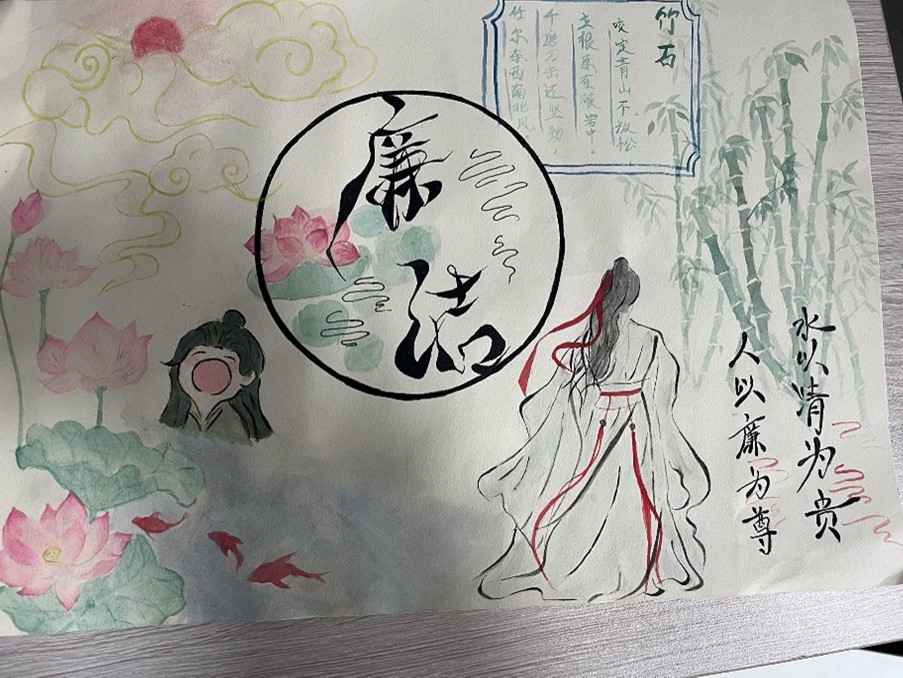 廉洁
竹石
咬定青山不放松
立根原在破岩中。
千磨万击还坚劲,
竹尔东西南北风
水以清为贵
人以廉为尊